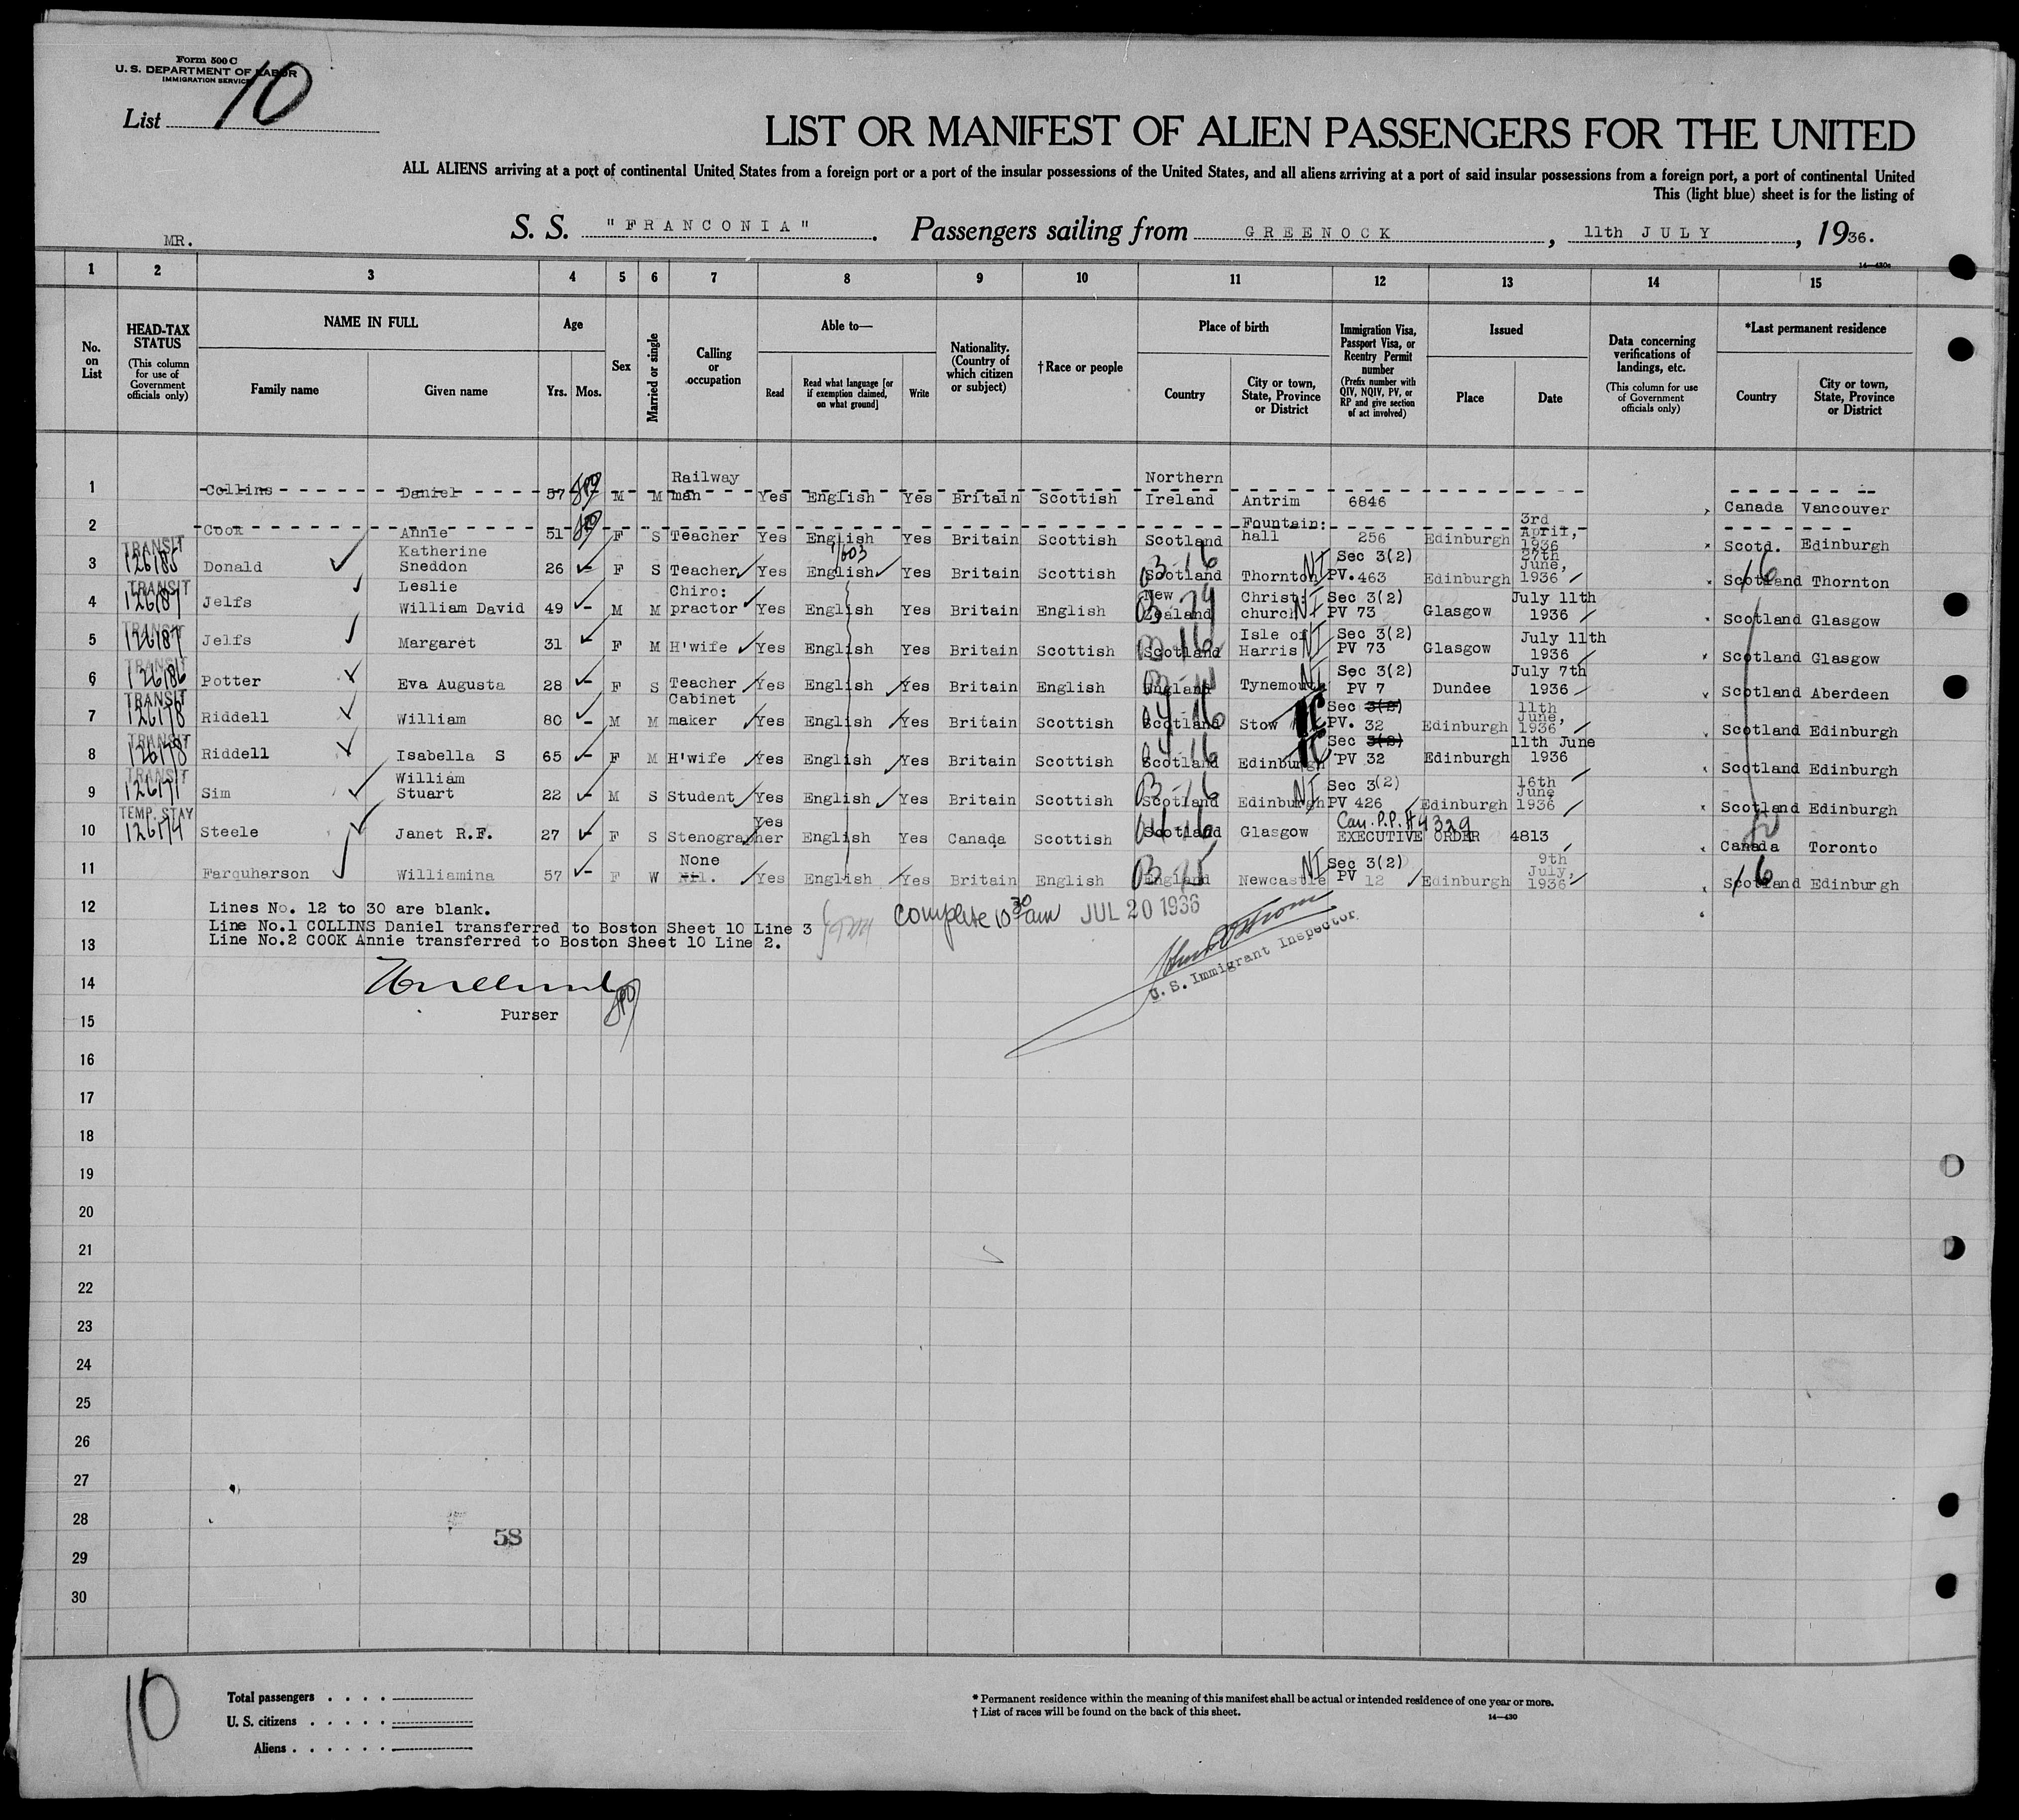 Form 500 C
U. S. DEPARTMENT OF LABOR
IMMIGRATION SERVICE
List 10
LIST OR MANIFEST OF ALIEN PASSENGERS FOR THE UNITED
ALL ALIENS arriving at a port of continental United States from a foreign port or a port of the insular possessions of the United States, and all aliens arriving at a port of said insular possessions from a foreign port, a port of continental United
This (light blue) sheet is for the listing of
S. S. "FRANCONIA". Passengers sailing from GREENOCK, 11th JULY, 1936.
MR.
14—430a
1 2 3 4 5 6 7 8 9 10 11 12 13 14 15
No. on List
HEAD-TAX STATUS (This column for use of Government officials only)
NAME IN FULL Family name Given name
Age Yrs. Mos.
Sex
Married or single
Calling or occupation
Able to— Read Read what language [or if exemption claimed, on what ground] Write
Nationality. (Country of which citizen or subject)
†Race or people
Place of birth Country City or town, State, Province or District
Immigration Visa, Passport Visa, or Reentry Permit number (Prefix number with QIV, NQIV, PV, or RP and give section of act involved)
Issued Place Date
Data concerning verifications of landings, etc. (This column for use of Government officials only)
*Last permanent residence Country City or town, State, Province or District
1 Collins Daniel 57 M M Railway man Yes English Yes Britain Scottish Northern Ireland Antrim 6846 Canada Vancouver
2 Cook Annie 51 F S Teacher Yes English Yes Britain Scottish Scotland Fountain: hall 256 Edinburgh 3rd April, 1936 Scotd. Edinburgh
3 TRANSIT 126185 Donald Katherine Sneddon 26 F S Teacher Yes English Yes Britain Scottish Scotland 03-16 Thornton NI Sec 3(2) PV. 463 Edinburgh 27th June, 1936 Scotland 16 Thornton
4 TRANSIT 126187 Jelfs Leslie William David 49 M M Chiro: practor Yes English Yes Britain English New Zealand Christ: church NI Sec 3(2) PV 73 Glasgow July 11th 1936 Scotland Glasgow
5 TRANSIT 126187 Jelfs Margaret 31 F M H'wife Yes English Yes Britain Scottish Scotland Isle of Harris NI Sec 3(2) PV 73 Glasgow July 11th 1936 Scotland Glasgow
6 TRANSIT 126186 Potter Eva Augusta 28 F S Teacher Yes English Yes Britain English England Tynemouth NI Sec 3(2) PV 7 Dundee July 7th 1936 Scotland Aberdeen
7 TRANSIT 126178 Riddell William 80 M M Cabinet maker Yes English Yes Britain Scottish Scotland 04-16 Stow Sec 3(2) PV. 32 Edinburgh 11th June, 1936 Scotland Edinburgh
8 TRANSIT 126178 Riddell Isabella S 65 F M H'wife Yes English Yes Britain Scottish Scotland 04-16 Edinburgh Sec 3(2) PV 32 Edinburgh 11th June 1936 Scotland Edinburgh
9 TRANSIT 126171 Sim William Stuart 22 M S Student Yes English Yes Britain Scottish Scotland 03-16 Edinburgh NI Sec 3(2) PV 426 Edinburgh 16th June 1936 Scotland Edinburgh
10 TEMP. STAY 126174 Steele Janet R.F. 27 F S Stenographer Yes English Yes Canada Scottish Scotland Glasgow Can. P.P. #4329 EXECUTIVE ORDER 4813 Canada Toronto
11 Farquharson Williamina 57 F W None Nil. Yes English Yes Britain English England Newcastle NI Sec 3(2) PV 12 Edinburgh 9th July, 1936 Scotland 16 Edinburgh
12 Lines No. 12 to 30 are blank.
Line No.1 COLLINS Daniel transferred to Boston Sheet 10 Line 3
13 Line No.2 COOK Annie transferred to Boston Sheet 10 Line 2.
complete 10 30 am JUL 20 1936
U. S. Immigrant Inspector
14
Purser
15
16
17
18
19
20
21
22
23
24
25
26
27
28
58
29
30
10
Total passengers
U. S. citizens
Aliens
* Permanent residence within the meaning of this manifest shall be actual or intended residence of one year or more.
† List of races will be found on the back of this sheet.
14—430